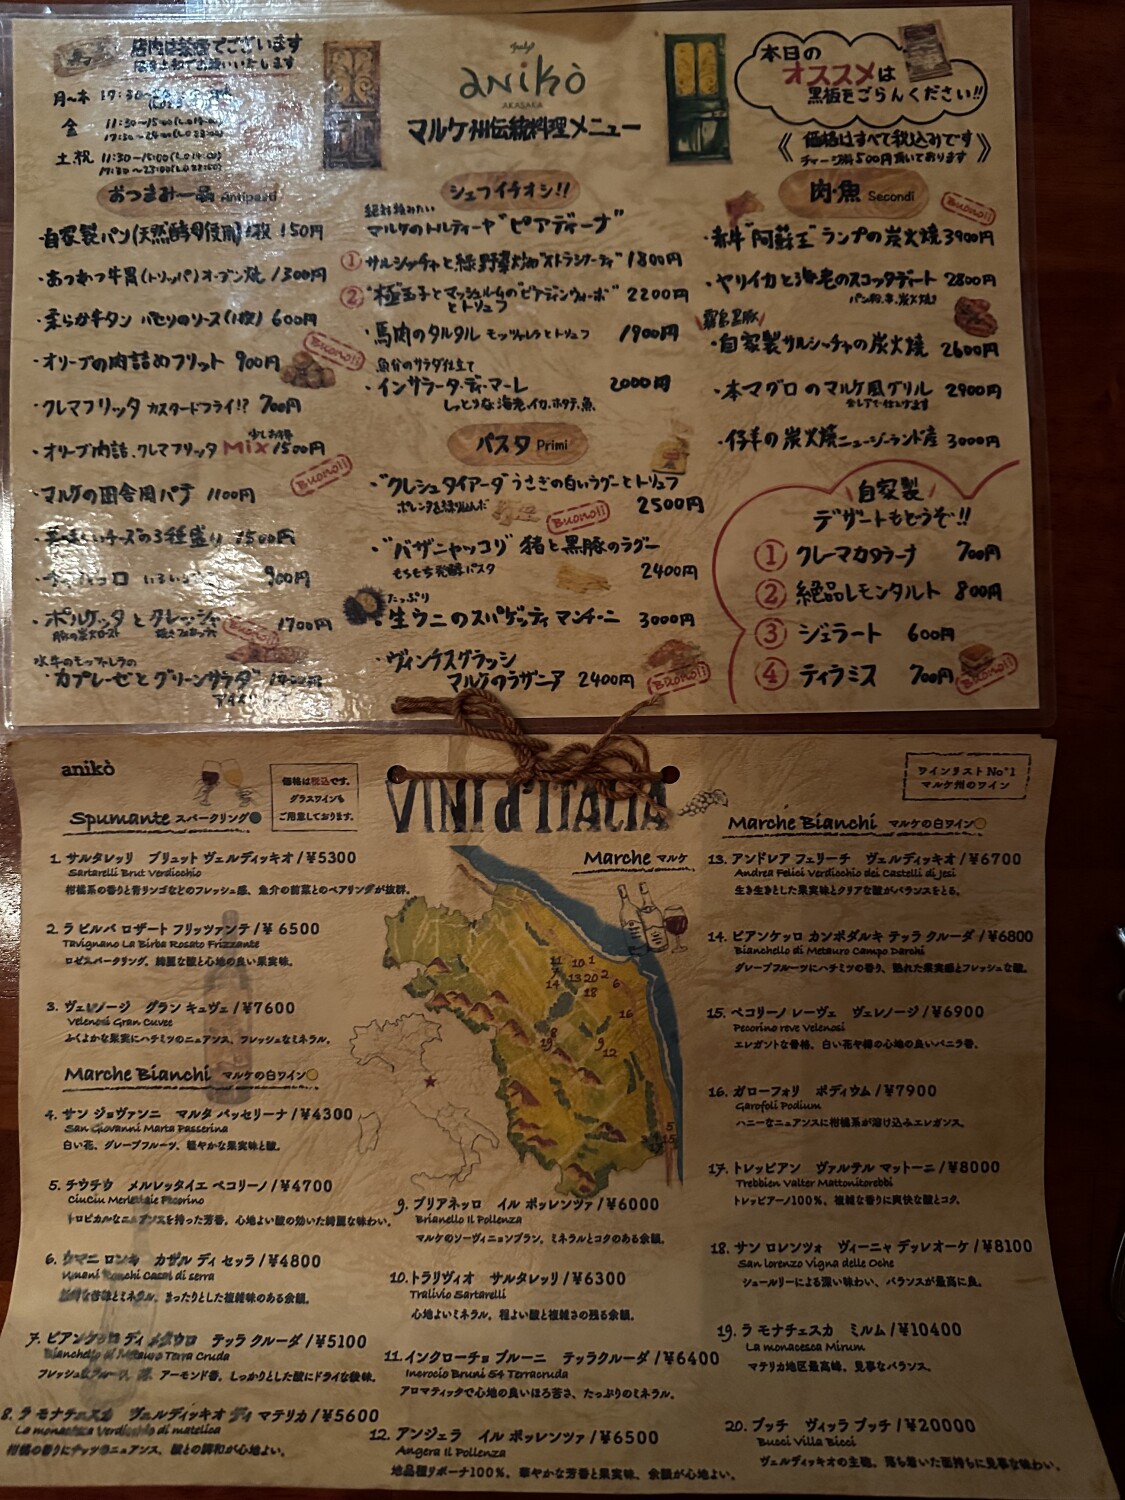 店内は禁煙でございます
月〜木 17:30〜
金 11:30〜15:00 (L.O 14:00)
17:30〜24:00 (L.O 23:00)
土.祝 11:30〜15:00 (L.O 14:00)
17:30〜23:00
anikò
AKASAKA
マルケ州伝統料理メニュー
本日の
オススメは
黒板をごらんください!!
《価格はすべて税込みです
チャージ料500円頂いております》
おつまみ一品 Antipasti
自家製パン(天然酵母使用)1枚 150円
・あつあつ牛胃(トリッパ)オーブン焼 1300円
・柔らか牛タン パセリのソース(1枚) 600円
・オリーブの肉詰めフリット 900円
Buono!!
・クレマフリッタ カスタードフライ!? 700円
・オリーブ肉詰.クレマフリッタ Mix 1500円
少しお得
・マルケの田舎風パテ 1100円
Buono!!
チーズの3種盛り 1500円
900円
・ポルケッタとクレッシャ 1700円
豚の炭火ロースト
Buono!!
水牛のモッツァレラの
カプレーゼとグリーンサラダ
シェフイチオシ!!
絶対頼みたい
マルケのトルティーヤ"ピアディーナ"
① サルシッチャと緑野菜 1800円
② "極"玉子とマッシュルームの 2200円
とトリュフ
・馬肉のタルタル モッツァレラとトリュフ 1900円
魚介のサラダ仕立て
・インサラータ・ディ・マーレ 2000円
しっとりな海老.イカ.ホタテ.魚.
パスタ Primi
・"クレシュタイアーダ"うさぎの白いラグーとトリュフ
ポレンタを練り込んだ
Buono!!
2500円
・"バザニャッコリ"猪と黒豚のラグー
もちもち発酵パスタ 2400円
たっぷり
・生ウニのスパゲッティ マンチーニ 3000円
・ヴィンチスグラッシ
マルケのラザニア 2400円
Buono!!
肉・魚 Secondi
Buono!!
・赤牛"阿蘇王"ランプの炭火焼 3900円
・ヤリイカと海老のスコッタデート 2800円
パン粉.串.炭火焼き
霧島黒豚
・自家製サルシーチャの炭火焼 2600円
・本マグロのマルケ風グリル 2900円
・仔羊の炭火焼ニュージーランド産 3000円
自家製
デザートもどうぞ!!
① クレーマカタラーナ 700円
② 絶品レモンタルト 800円
③ ジェラート 600円
④ ティラミス 700円
Buono!!
anikò
価格は税込です。
グラスワインも
ご用意しております。
VINI d'ITALIA
ワインリスト No°1
マルケ州のワイン
Spumante スパークリング
1. サルタレッリ ブリュット ヴェルディッキオ / ¥5300
Sartarelli Brut Verdicchio
柑橘系の香りと青リンゴなどのフレッシュ感、魚介の前菜とのペアリングが抜群。
2. ラ ビルバ ロザート フリッツァンテ / ¥6500
Tavignano La Birba Rosato Frizzante
ロゼスパークリング、綺麗な酸と心地の良い果実味。
3. ヴェレノージ グラン キュヴェ / ¥7600
Velenosi Gran Cuvee
ふくよかな果実にハチミツのニュアンス、フレッシュなミネラル。
Marche Bianchi マルケの白ワイン
4. サン ジョヴァンニ マルタ パッセリーナ / ¥4300
San Giovanni Marta Passerina
白い花、グレープフルーツ、軽やかな果実味と酸。
5. チウチウ メルレッタイエ ペコリーノ / ¥4700
CiuCiu Merlettaie Pecorino
トロピカルなニュアンスを持った芳香、心地よい酸の効いた綺麗な味わい。
6. ウマニ ロンキ カザル ディ セッラ / ¥4800
Umani Ronchi Casal di serra
まったりとした複雑味のある余韻。
7. ビアンケッロ ディ メタウロ テッラ クルーダ / ¥5100
Bianchello di Metauro Terra Cruda
アーモンド香、しっかりとした酸にドライな後味。
8. ラ モナチェスカ ヴェルディッキオ ディ マテリカ / ¥5600
La monacesca Verdicchio di matelica
柑橘の香りにナッツのニュアンス、酸との調和が心地よい。
Marche マルケ
11 10 1
7 13 20 2
14 18 6
16
8
19 9
12
5
3 15
9. ブリアネッロ イル ポッレンツァ / ¥6000
Brianello Il Pollenza
マルケのソーヴィニョンブラン、ミネラルとコクのある余韻。
10. トラリヴィオ サルタレッリ / ¥6300
Tralivio Sartarelli
心地よいミネラル、程よい酸と複雑さの残る余韻。
11. インクローチョ ブルーニ テッラクルーダ / ¥6400
Incrocio Bruni 54 Terracruda
アロマティックで心地の良いほろ苦さ、たっぷりのミネラル。
12. アンジェラ イル ポッレンツァ / ¥6500
Angera Il Pollenza
地品種リボーナ100%、華やかな芳香と果実味、余韻が心地よい。
Marche Bianchi マルケの白ワイン
13. アンドレア フェリーチ ヴェルディッキオ / ¥6700
Andrea Felici Verdicchio dei Castelli di Jesi
生き生きとした果実味とクリアな酸がバランスをとる。
14. ビアンケッロ カンポダルキ テッラ クルーダ / ¥6800
Bianchello di Metauro Campo Darchi
グレープフルーツにハチミツの香り、熟れた果実感とフレッシュな酸。
15. ペコリーノ レーヴェ ヴェレノージ / ¥6900
Pecorino reve Velenosi
エレガントな骨格、白い花や樽の心地の良いバニラ香。
16. ガローフォリ ポディウム / ¥7900
Garofoli Podium
ハニーなニュアンスに柑橘系が溶け込みエレガンス。
17. トレッビアン ヴァルテル マットーニ / ¥8000
Trebbien Valter Mattonitorebbi
トレッビアーノ100%、複雑な香りに爽快な酸とコク。
18. サン ロレンツォ ヴィーニャ デッレオーケ / ¥8100
San lorenzo Vigna delle Oche
シュールリーによる深い味わい、バランスが最高に良。
19. ラ モナチェスカ ミルム / ¥10400
La monacesca Mirum
マテリカ地区最高峰、見事なバランス。
20. ブッチ ヴィッラ ブッチ / ¥20000
Bucci Villa Bicci
ヴェルディッキオの主砲、落ち着いた面持ちに見事な味わい。